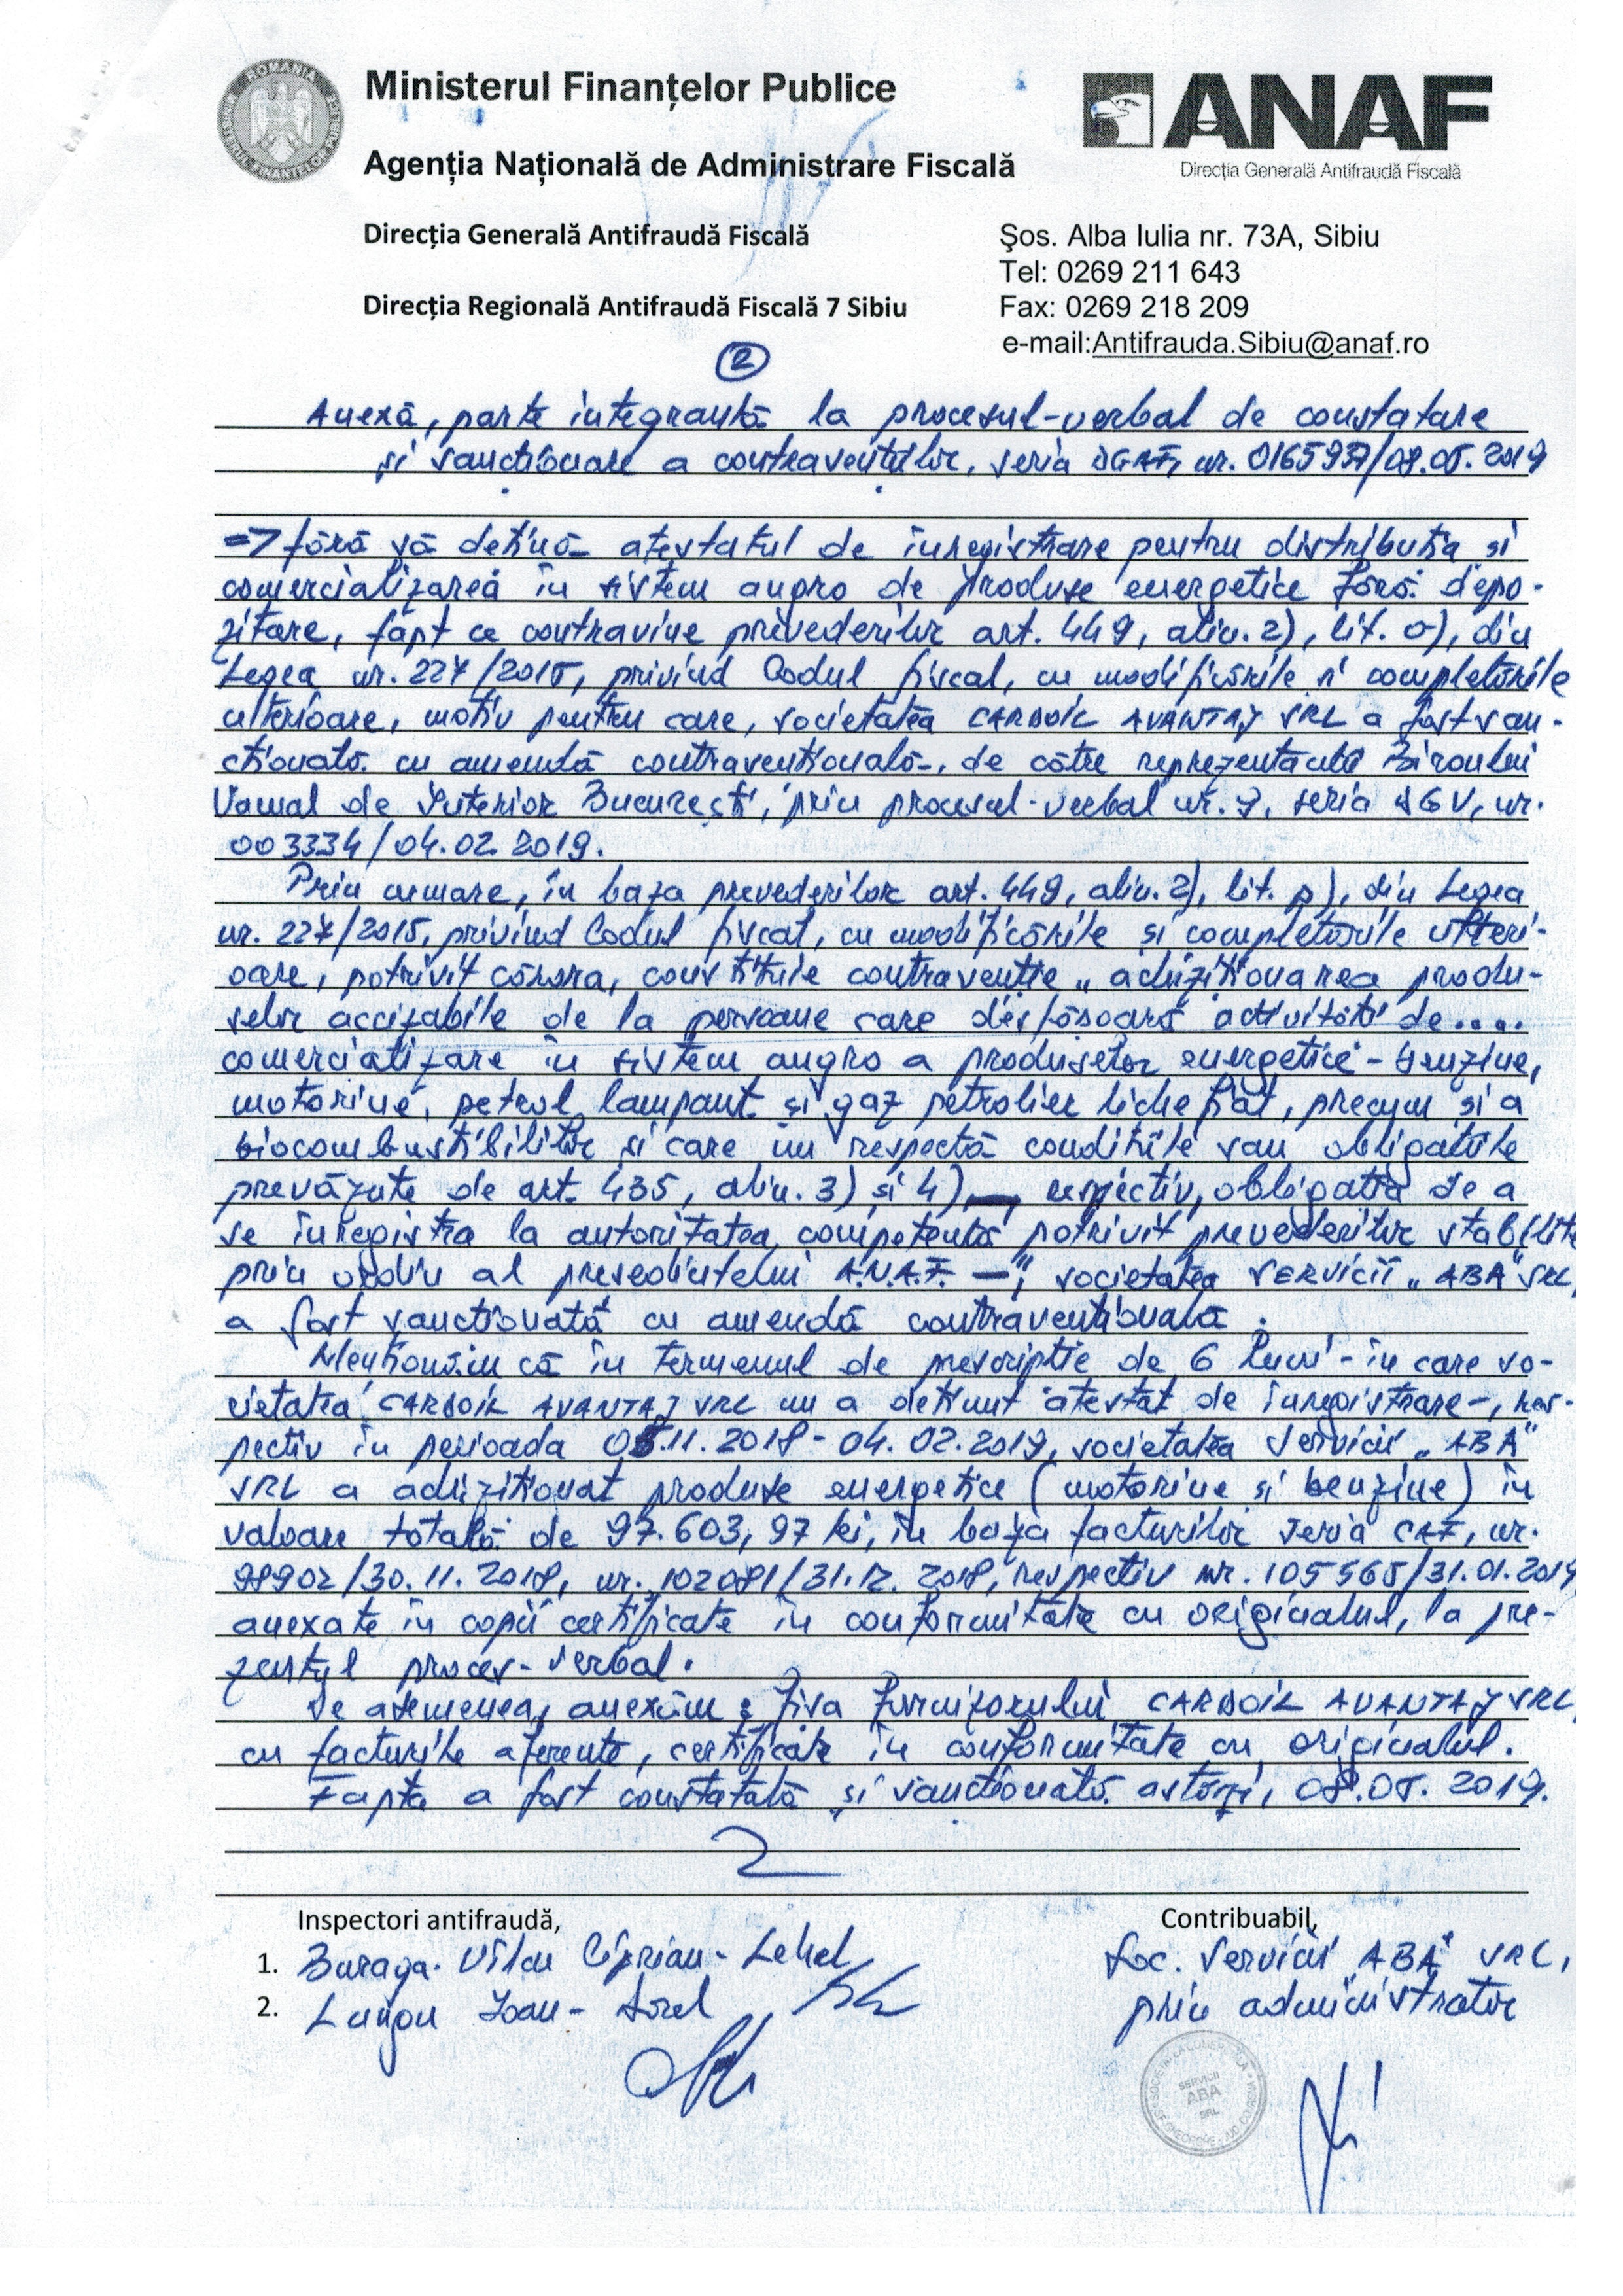 ROMANIA
MINISTERUL FINANȚELOR PUBLICE
Ministerul Finanțelor Publice
Agenția Națională de Administrare Fiscală
ANAF
Direcția Generală Antifraudă Fiscală
Direcția Generală Antifraudă Fiscală
Direcția Regională Antifraudă Fiscală 7 Sibiu
Șos. Alba Iulia nr. 73A, Sibiu
Tel: 0269 211 643
Fax: 0269 218 209
e-mail:Antifrauda.Sibiu@anaf.ro
2
Anexă, parte integrantă la procesul-verbal de constatare
și sancționare a contravențiilor, seria DGAF, nr.
=> fără să dețină atestatul de înregistrare pentru distribuția și
comercializarea în sistem angro de produse energetice fără depo-
zitare, fapt ce contravine prevederilor art. 449, alin. 2), lit. o), din
Legea nr. 227/2015, privind Codul fiscal, cu modificările și completările
ulterioare, motiv pentru care, societatea CARBOIL AVANTAJ SRL a fost san-
cționată cu amendă contravențională, de către reprezentanții Biroului
Vamal de Interior București, prin procesul-verbal nr. 7, seria DGV, nr.
003334/04.02.2019.
Prin urmare, în baza prevederilor art. 449, alin. 2), lit. p), din Legea
nr. 227/2015, privind Codul fiscal, cu modificările și completările ulteri-
oare, potrivit cărora, constituie contravenție „achiziționarea produ-
selor accizabile de la persoane care desfășoară activități de....
comercializare în sistem angro a produselor energetice - benzine,
motorine, petrol lampant și gaz petrolier lichefiat, precum și a
biocombustibililor și care nu respectă condițiile sau obligațiile
prevăzute de art. 435, alin. 3) și 4), respectiv, obligația de a
se înregistra la autoritatea competentă potrivit prevederilor stabilite
prin ordin al președintelui A.N.A.F. —", societatea SERVICII „ABA" SRL,
a fost sancționată cu amendă contravențională.
Menționăm că în termenul de prescripție de 6 luni - în care so-
cietatea CARBOIL AVANTAJ SRL nu a deținut atestat de înregistrare -, res-
pectiv în perioada 05.11.2018 - 04.02.2019, societatea Servicii „ABA"
SRL a achiziționat produse energetice (motorine și benzine) în
valoare totală de 97.603,97 lei, în baza facturilor seria CAF, nr.
98902/30.11.2018, nr. 102081/31.12.2018, respectiv nr. 105565/31.01.2019
anexate în copii certificate în conformitate cu originalul, la pre-
zentul proces-verbal.
De asemenea, anexăm: fișa furnizorului CARBOIL AVANTAJ SRL,
cu facturile aferente, certificate în conformitate cu originalul.
Fapta a fost constatată și sancționată astăzi, 08.05.2019.
Inspectori antifraudă,
Contribuabil,
1. Ciprian-Lehel
Soc. Servicii „ABA" SRL,
2. Lungu Ioan-
prin administrator
SERVICII
ABA
SRL